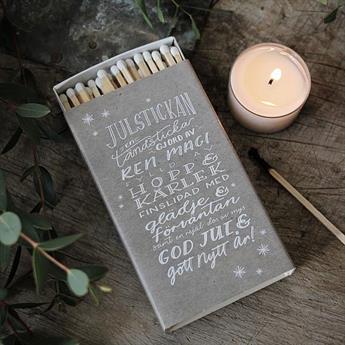 JULSTICKAN
en
Tändsticka
GJORD AV
REN MAGI
FYLLD AV
HOPP &
KÄRLEK
FINSLIPAD MED
Glädje &
Förväntan
samt en rejäl dos av mys
GOD JUL &
gott Nytt År!